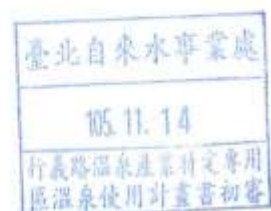 臺北自來水事業處
105.11.14
行義路溫泉產業特定專用
區溫泉使用計畫書初審